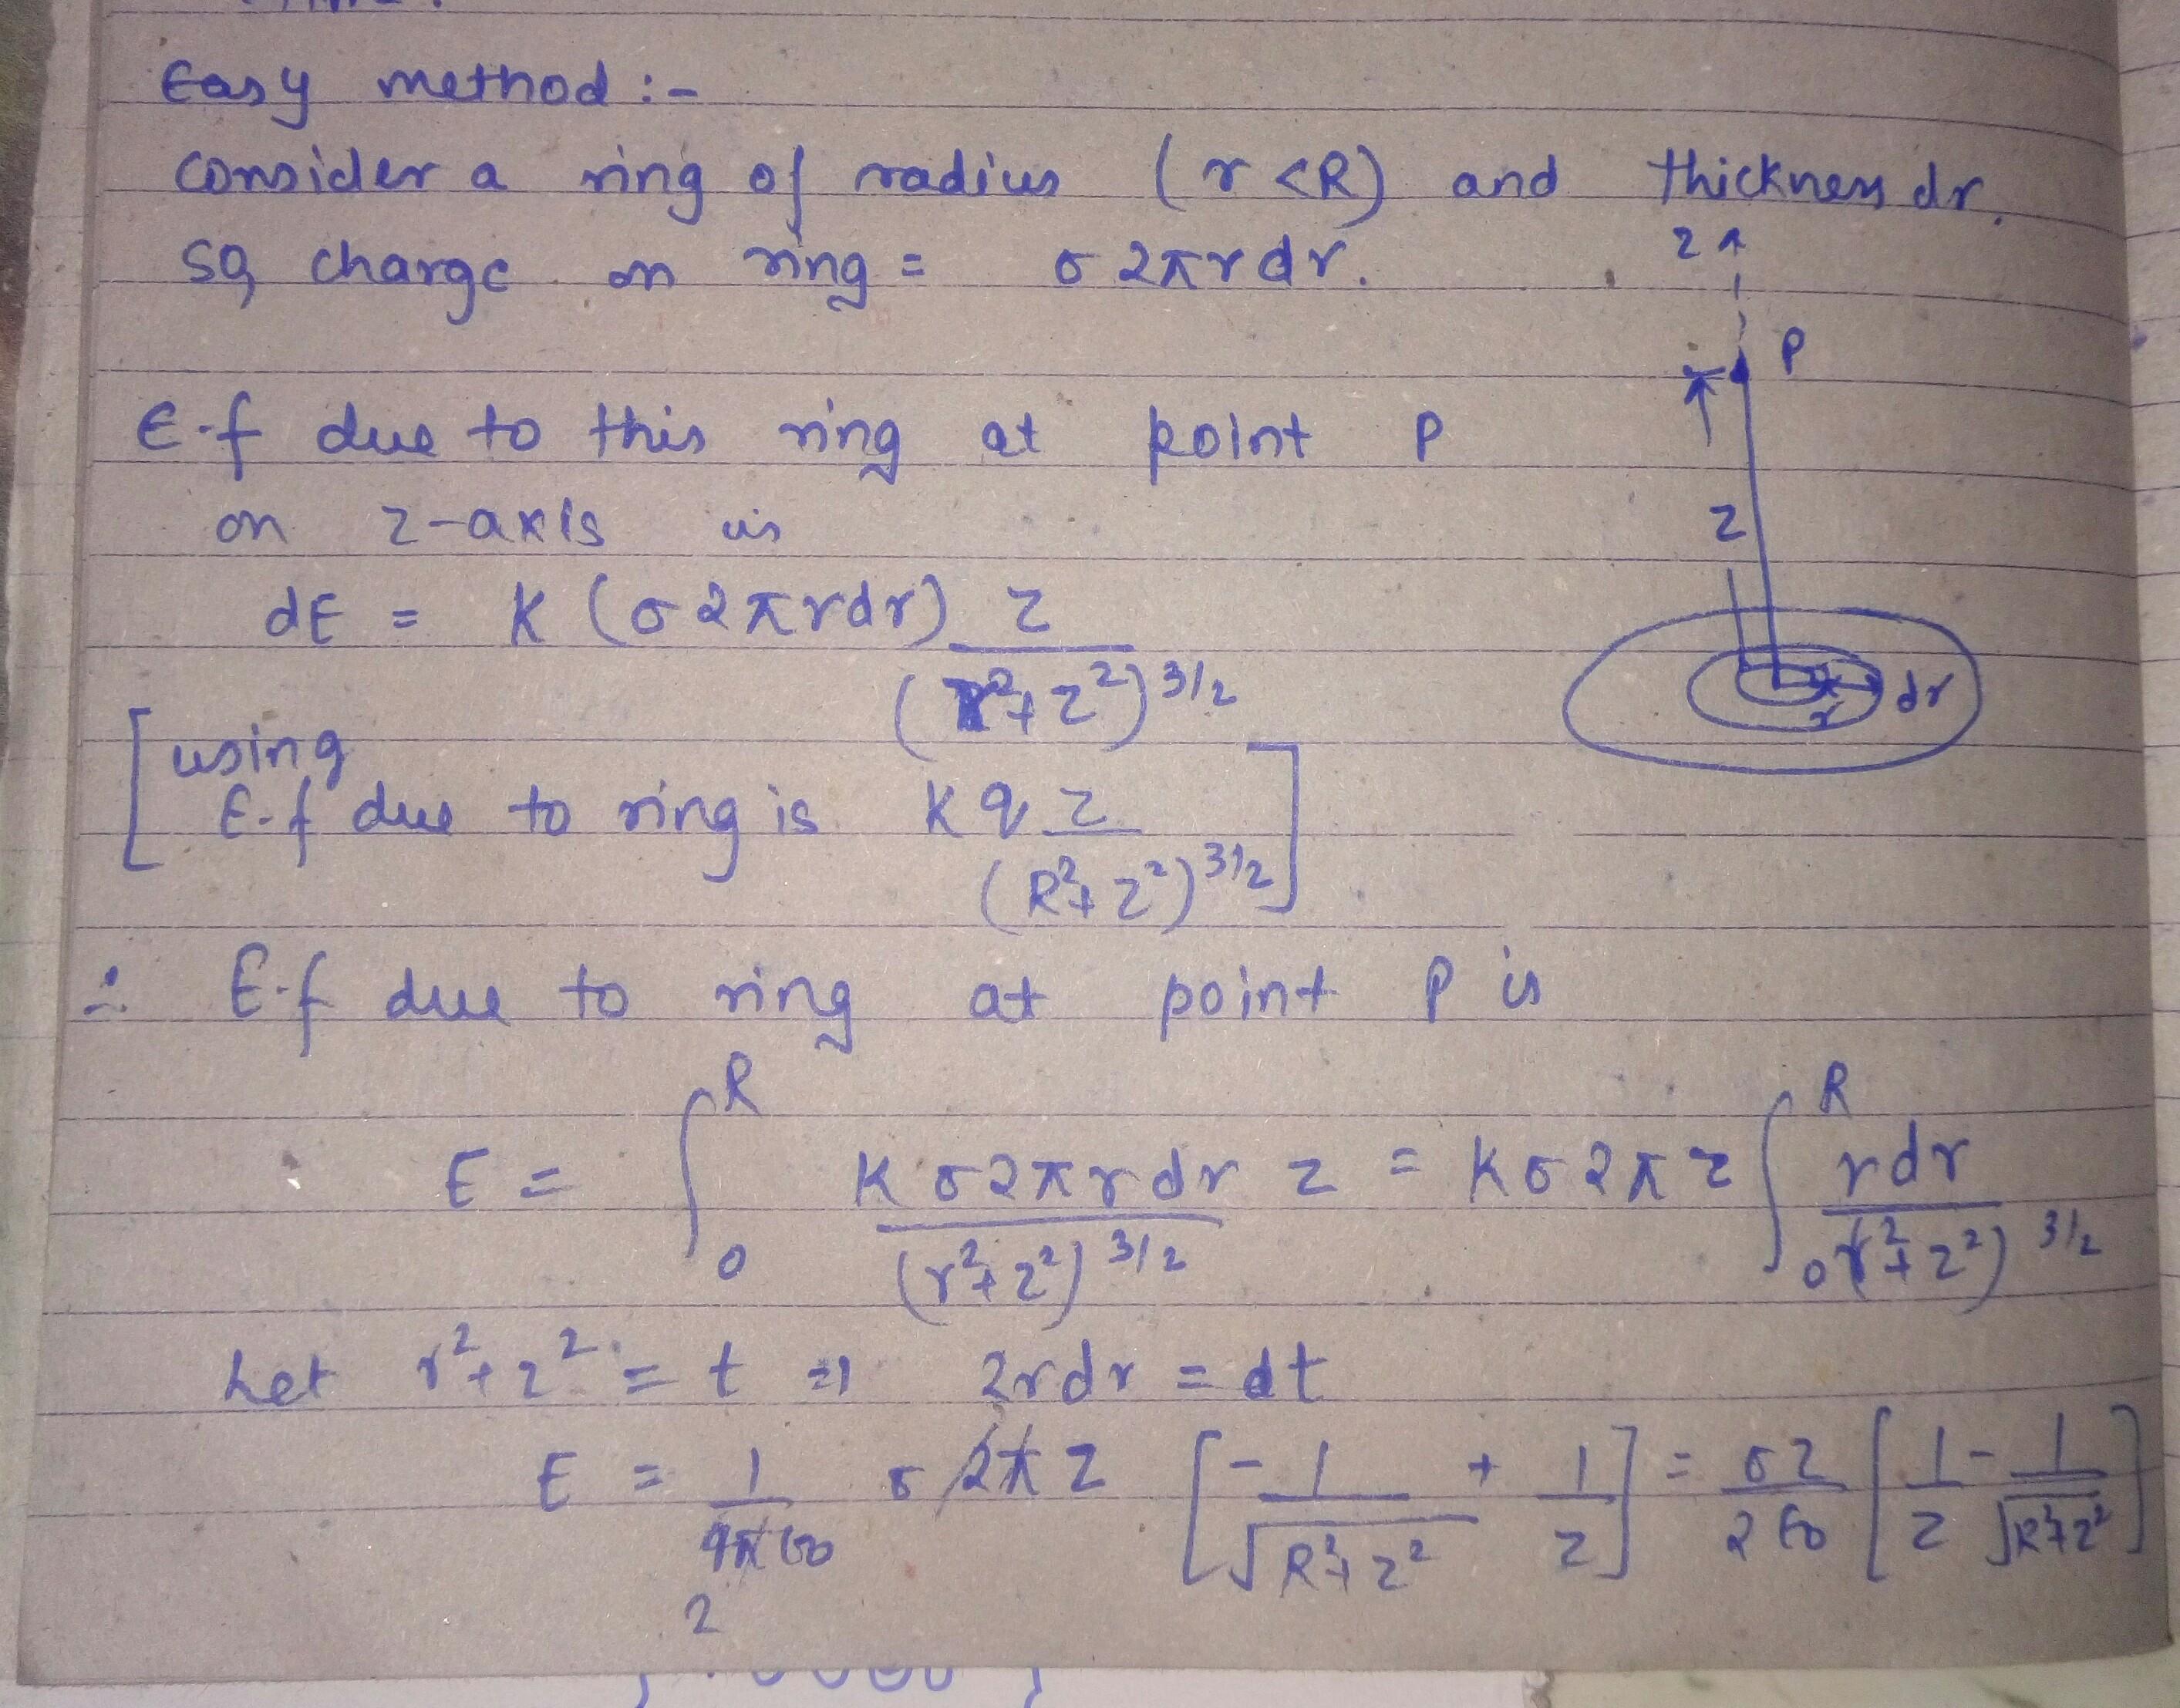 Easy method :-
consider a ring of radius (r<R) and thickness dr.
so, charge on ring = σ 2πrdr.
z
P
E.f due to this ring at point P
on z-axis is
z
dE = K (σ2πrdr) z / (r²+z²)^3/2
r dr
[using
E.f due to ring is Kq z / (R²+z²)^3/2]
∴ E.f due to ring at point P is
E = ∫₀^R Kσ2πrdr z / (r²+z²)^3/2 = Kσ2πz ∫₀^R rdr / (r²+z²)^3/2
Let r²+z² = t ⇒ 2rdr = dt
E = 1/4πε₀ σ 2π z [-1/√(R²+z²) + 1/z] = σz/2ε₀ [1/z - 1/√(R²+z²)]
2